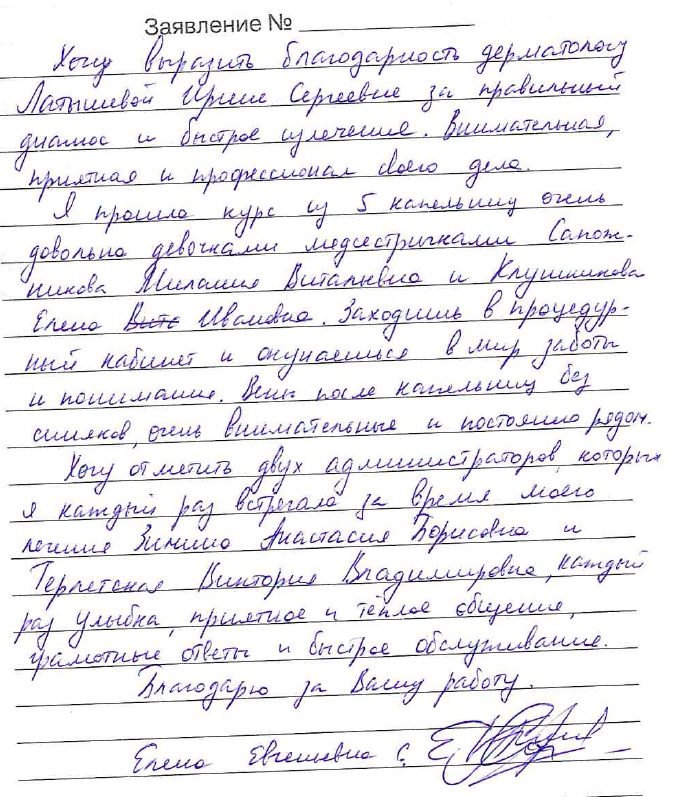 Заявление №
Хочу выразить благодарность дерматологу
Латышевой Ирине Сергеевне за правильный
диагноз и быстрое излечение. Внимательная,
приятная и профессионал своего дела.
Я прошла курс из 5 капельниц очень
довольна девочками медсестричками Сапож-
никова Милания Витальевна и Клушникова
Елена Вита Ивановна. Заходишь в процедур-
ный кабинет и окунаешься в мир заботы
и понимания. Вены после капельниц без
синяков, очень внимательные и постоянно рядом.
Хочу отметить двух администраторов, которых
я каждый раз встречала за время моего
лечения Зимина Анастасия Борисовна и
Терлетская Виктория Владимировна, каждый
раз улыбка, приятное и тёплое общение,
грамотные ответы и быстрое обслуживание.
Благодарю за Вашу работу.
Елена Евгеньевна С.